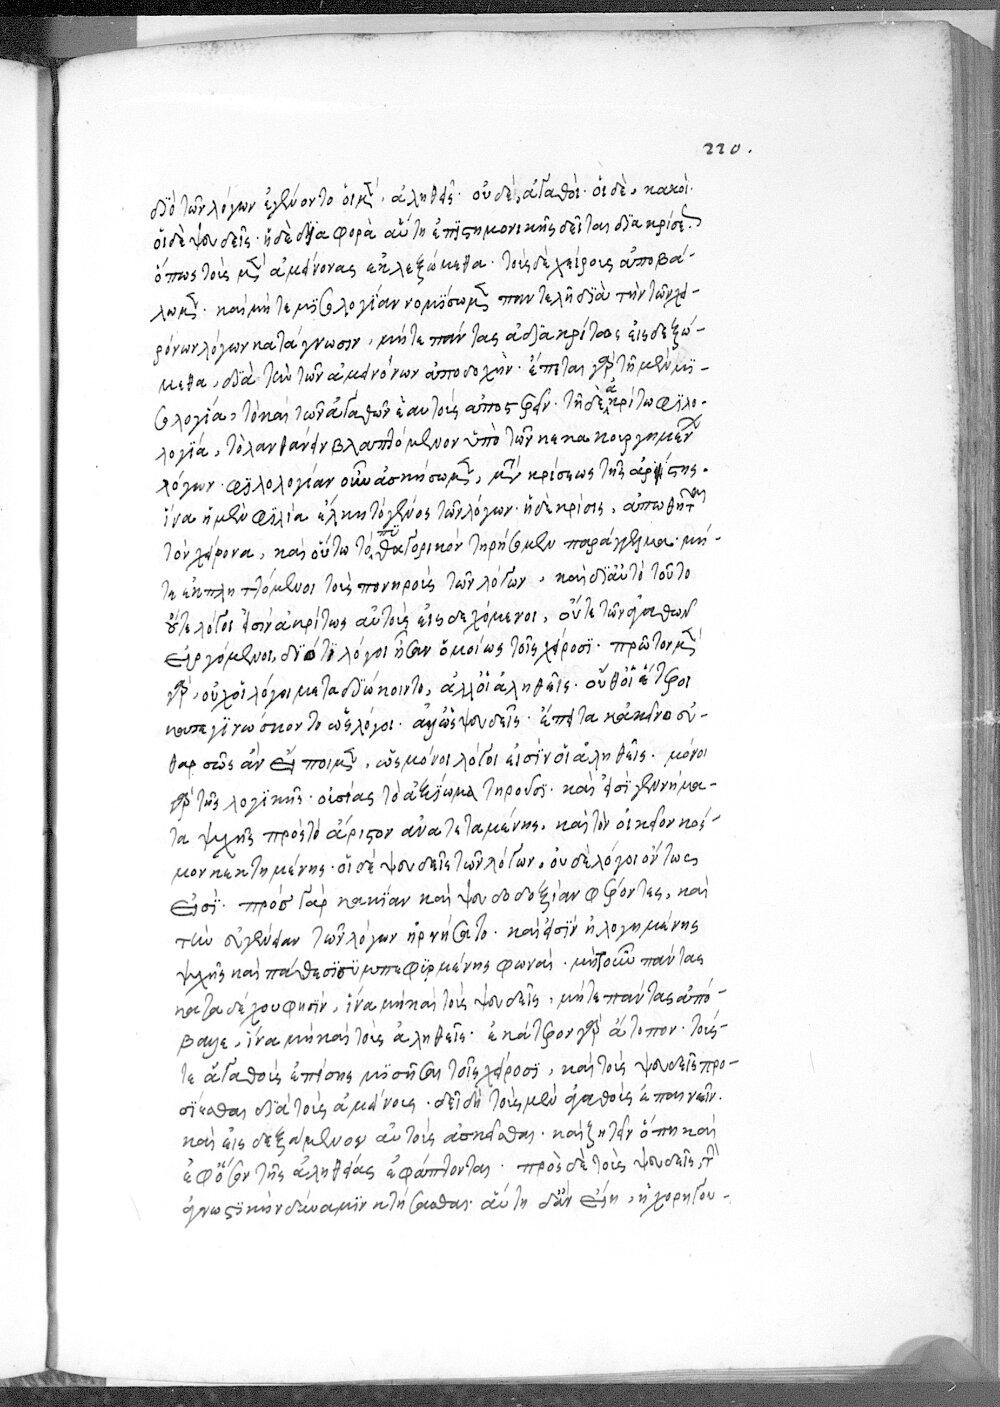 220.
διὸ τῶν λόγων ἐγένοντο οἱ μὲν, ἀληθεῖς· οὐδὲ, ἀγαθοὶ· οἱ δὲ, κακοὶ·
οἱ δὲ ψευδεῖς· ἡ δὲ διαφορὰ αὕτη ἐπιστημονικῆς δεῖται διακρίσεως
ὅπως τοὺς μὲν ἀμείνονας ἐκλεξώμεθα· τοὺς δὲ χείρους ἀποβά-
λωμεν· καὶ μήτε μισολογίαν νομίσωμεν παντελῆ διὰ τὴν τῶν χει-
ρόνων λόγων κατάγνωσιν, μήτε πάντας ἀδιακρίτως εἰσδεξώ-
μεθα, διὰ τὴν τῶν ἀμεινόνων ἀποδοχὴν· ἕπεται γὰρ τῇ μὲν μι-
σολογία, τὸ καὶ τῶν ἀγαθῶν ἑαυτοὺς ἀποστερεῖν· τῇ δὲ ἀκρίτω φιλο-
λογία, τὸ λανθάνειν βλαπτόμενον ὑπὸ τῶν κεκακουργημένων
λόγων· φιλολογίαν οὖν ἀσκήσωμεν, μετὰ κρίσεως τῆς ἀρίστης·
ἵνα ἡ μὲν φιλία ἕλκη τὸ γένος τῶν λόγων· ἡ δὲ κρίσις, ἀπωθῆται
τὸν χείρονα, καὶ οὕτω τὸ πυθαγορικὸν τηρήσομεν παράγγελμα· μή-
τε ἐκπληττόμενοι τοὺς πονηροὺς τῶν λόγων, καὶ διαὐτὸ τοῦτο
ὅτε λόγοι εἰσὶν ἀκρίτως αὐτοὺς εἰσδεχόμενοι, οὔτε τῶν ἀγαθῶν
εἰργόμενοι, διότι λόγοι ἦσαν ὁμοίως τοῖς χείροσι· πρῶτον μὲν
γὰρ, οὐχ οἱ λόγοι μεταδιώκοιντο, ἀλλ' οἱ ἀληθεῖς· οὐθ' οἱ ἕτεροι
κατεγινώσκοντο ὡς λόγοι· ἀλλ' ὡς ψευδεῖς· ἔπειτα κἀκεῖνο εὐ-
θαρσῶς ἂν εἴποιμεν, ὡς μόνοι λόγοι εἰσὶν οἱ ἀληθεῖς· μόνοι
γὰρ τῆς λογικῆς οὐσίας τὸ ἀξίωμα τηροῦσι· καὶ εἰσὶ γεννήμα-
τα ψυχῆς πρὸς τὸ ἄριστον ἀνατεταμένης, καὶ τὸν οἰκεῖον κόσ-
μον κεκτημένης· οἱ δὲ ψευδεῖς τῶν λόγων, οὐδὲ λόγοι ὄντως
εἰσί· πρὸς γὰρ κακίαν καὶ ψευδοδοξίαν φέροντες, καὶ
τὴν εὐγένειαν τῶν λόγων ἠρνήσαντο· καὶ εἰσὶν ἠλογημένης
ψυχῆς καὶ πάθεσι συμπεφυρμένης φωναὶ· μὴ τοῦν πάντας
καταδέχου φησὶν, ἵνα μὴ καὶ τοὺς ψευδεῖς, μήτε πάντας ἀπό-
βαλε, ἵνα μὴ καὶ τοὺς ἀληθεῖς· ἑκάτερον γὰρ ἄτοπον· τούσ-
τε ἀγαθοὺς ἐπίσης μισῆσαι τοῖς χείροσι, καὶ τοὺς ψευδεῖς προ-
σίεσθαι διὰ τοὺς ἀμείνους· δεῖ δὴ τοὺς μὲν ἀγαθοὺς ἐπαινεῖν·
καὶ εἰσδεξάμενον αὐτοὺς ἀσκεῖσθαι· καὶ ζητεῖν ὅπη καὶ
ἐφόσον τῆς ἀληθείας ἐφάπτονται· πρὸς δὲ τοὺς ψευδεῖς, τὴν
γνωστικὴν δύναμιν κτήσασθαι· αὕτη δἂν εἴη, ἡ χορηγου-